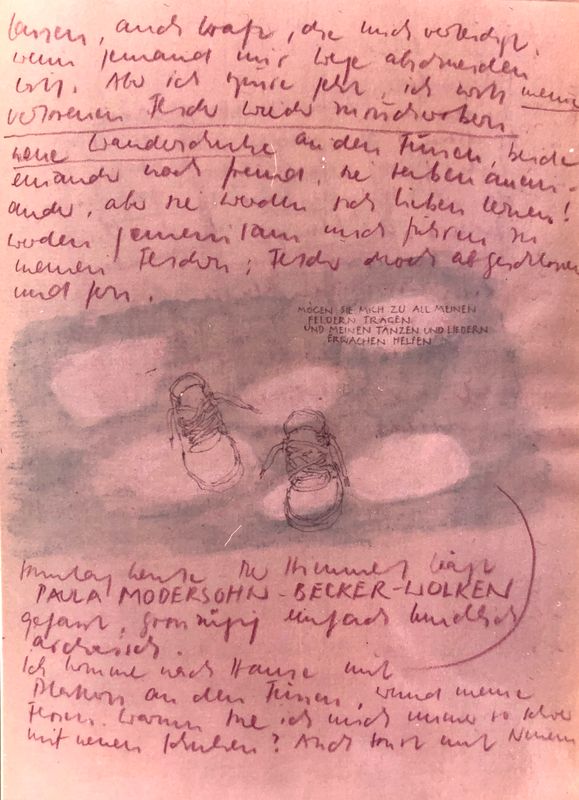 lassen, auch Kraft, die mich verteidigt,
wenn jemand mir Wege abschneiden
will. Aber ich spüre jetzt, ich will meine
verlorenen Felder wieder zurückerobern
neue Wanderschuhe an den Füssen, beide
einander noch fremd, sie reiben anein-
ander, aber sie werden sich lieben lernen!
werden gemeinsam mich führen zu
meinen Feldern; Felder noch abgeschlossen
und fern.
MÖGEN SIE MICH ZU ALL MEINEN
FELDERN TRAGEN
UND MEINEN TÄNZEN UND LIEDERN
ERWACHEN HELFEN
heute Der Himmel trägt
PAULA MODERSOHN-BECKER-WOLKEN
einfach kindlich
archaisch.
Ich komme nach Hause mit
Pflastern an den Füssen, wund meine
Fersen. Warum tue ich mich immer so schwer
mit neuen Schuhen? Auch sonst mit Neuem